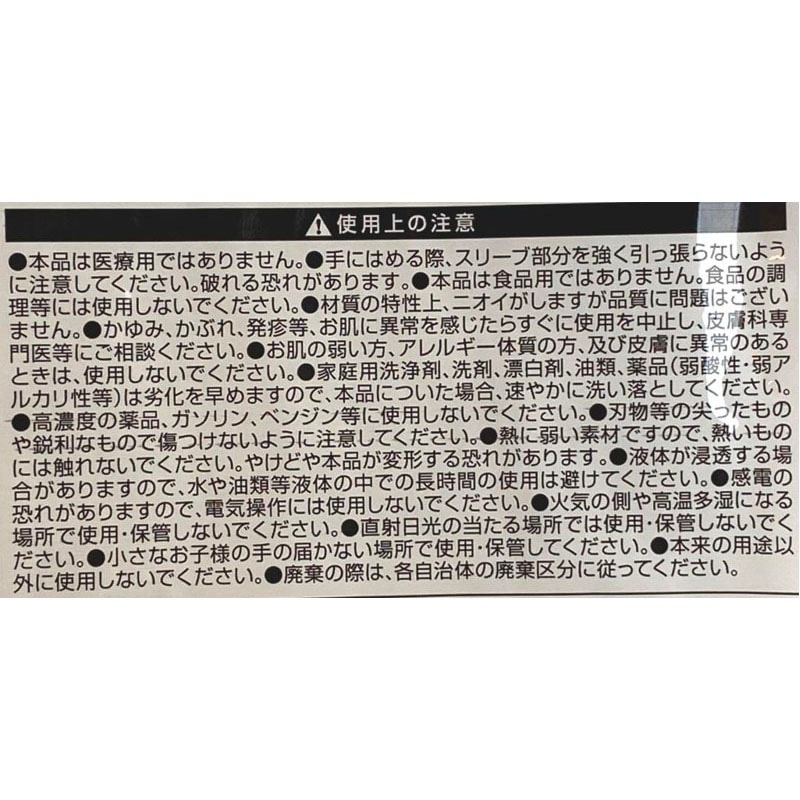 ⚠使用上の注意
●本品は医療用ではありません。●手にはめる際、スリーブ部分を強く引っ張らないよう
に注意してください。破れる恐れがあります。●本品は食品用ではありません。食品の調
理等には使用しないでください。●材質の特性上、ニオイがしますが品質に問題はござい
ません。●かゆみ、かぶれ、発疹等、お肌に異常を感じたらすぐに使用を中止し、皮膚科専
門医等にご相談ください。●お肌の弱い方、アレルギー体質の方、及び皮膚に異常のある
ときは、使用しないでください。●家庭用洗浄剤、洗剤、漂白剤、油類、薬品（弱酸性・弱ア
ルカリ性等）は劣化を早めますので、本品についた場合、速やかに洗い落としてください。
●高濃度の薬品、ガソリン、ベンジン等に使用しないでください。●刃物等の尖ったもの
や鋭利なもので傷つけないように注意してください。●熱に弱い素材ですので、熱いもの
には触れないでください。やけどや本品が変形する恐れがあります。●液体が浸透する場
合がありますので、水や油類等液体の中での長時間の使用は避けてください。●感電の
恐れがありますので、電気操作には使用しないでください。●火気の側や高温多湿になる
場所で使用・保管しないでください。●直射日光の当たる場所では使用・保管しないでく
ださい。●小さなお子様の手の届かない場所で使用・保管してください。●本来の用途以
外に使用しないでください。●廃棄の際は、各自治体の廃棄区分に従ってください。